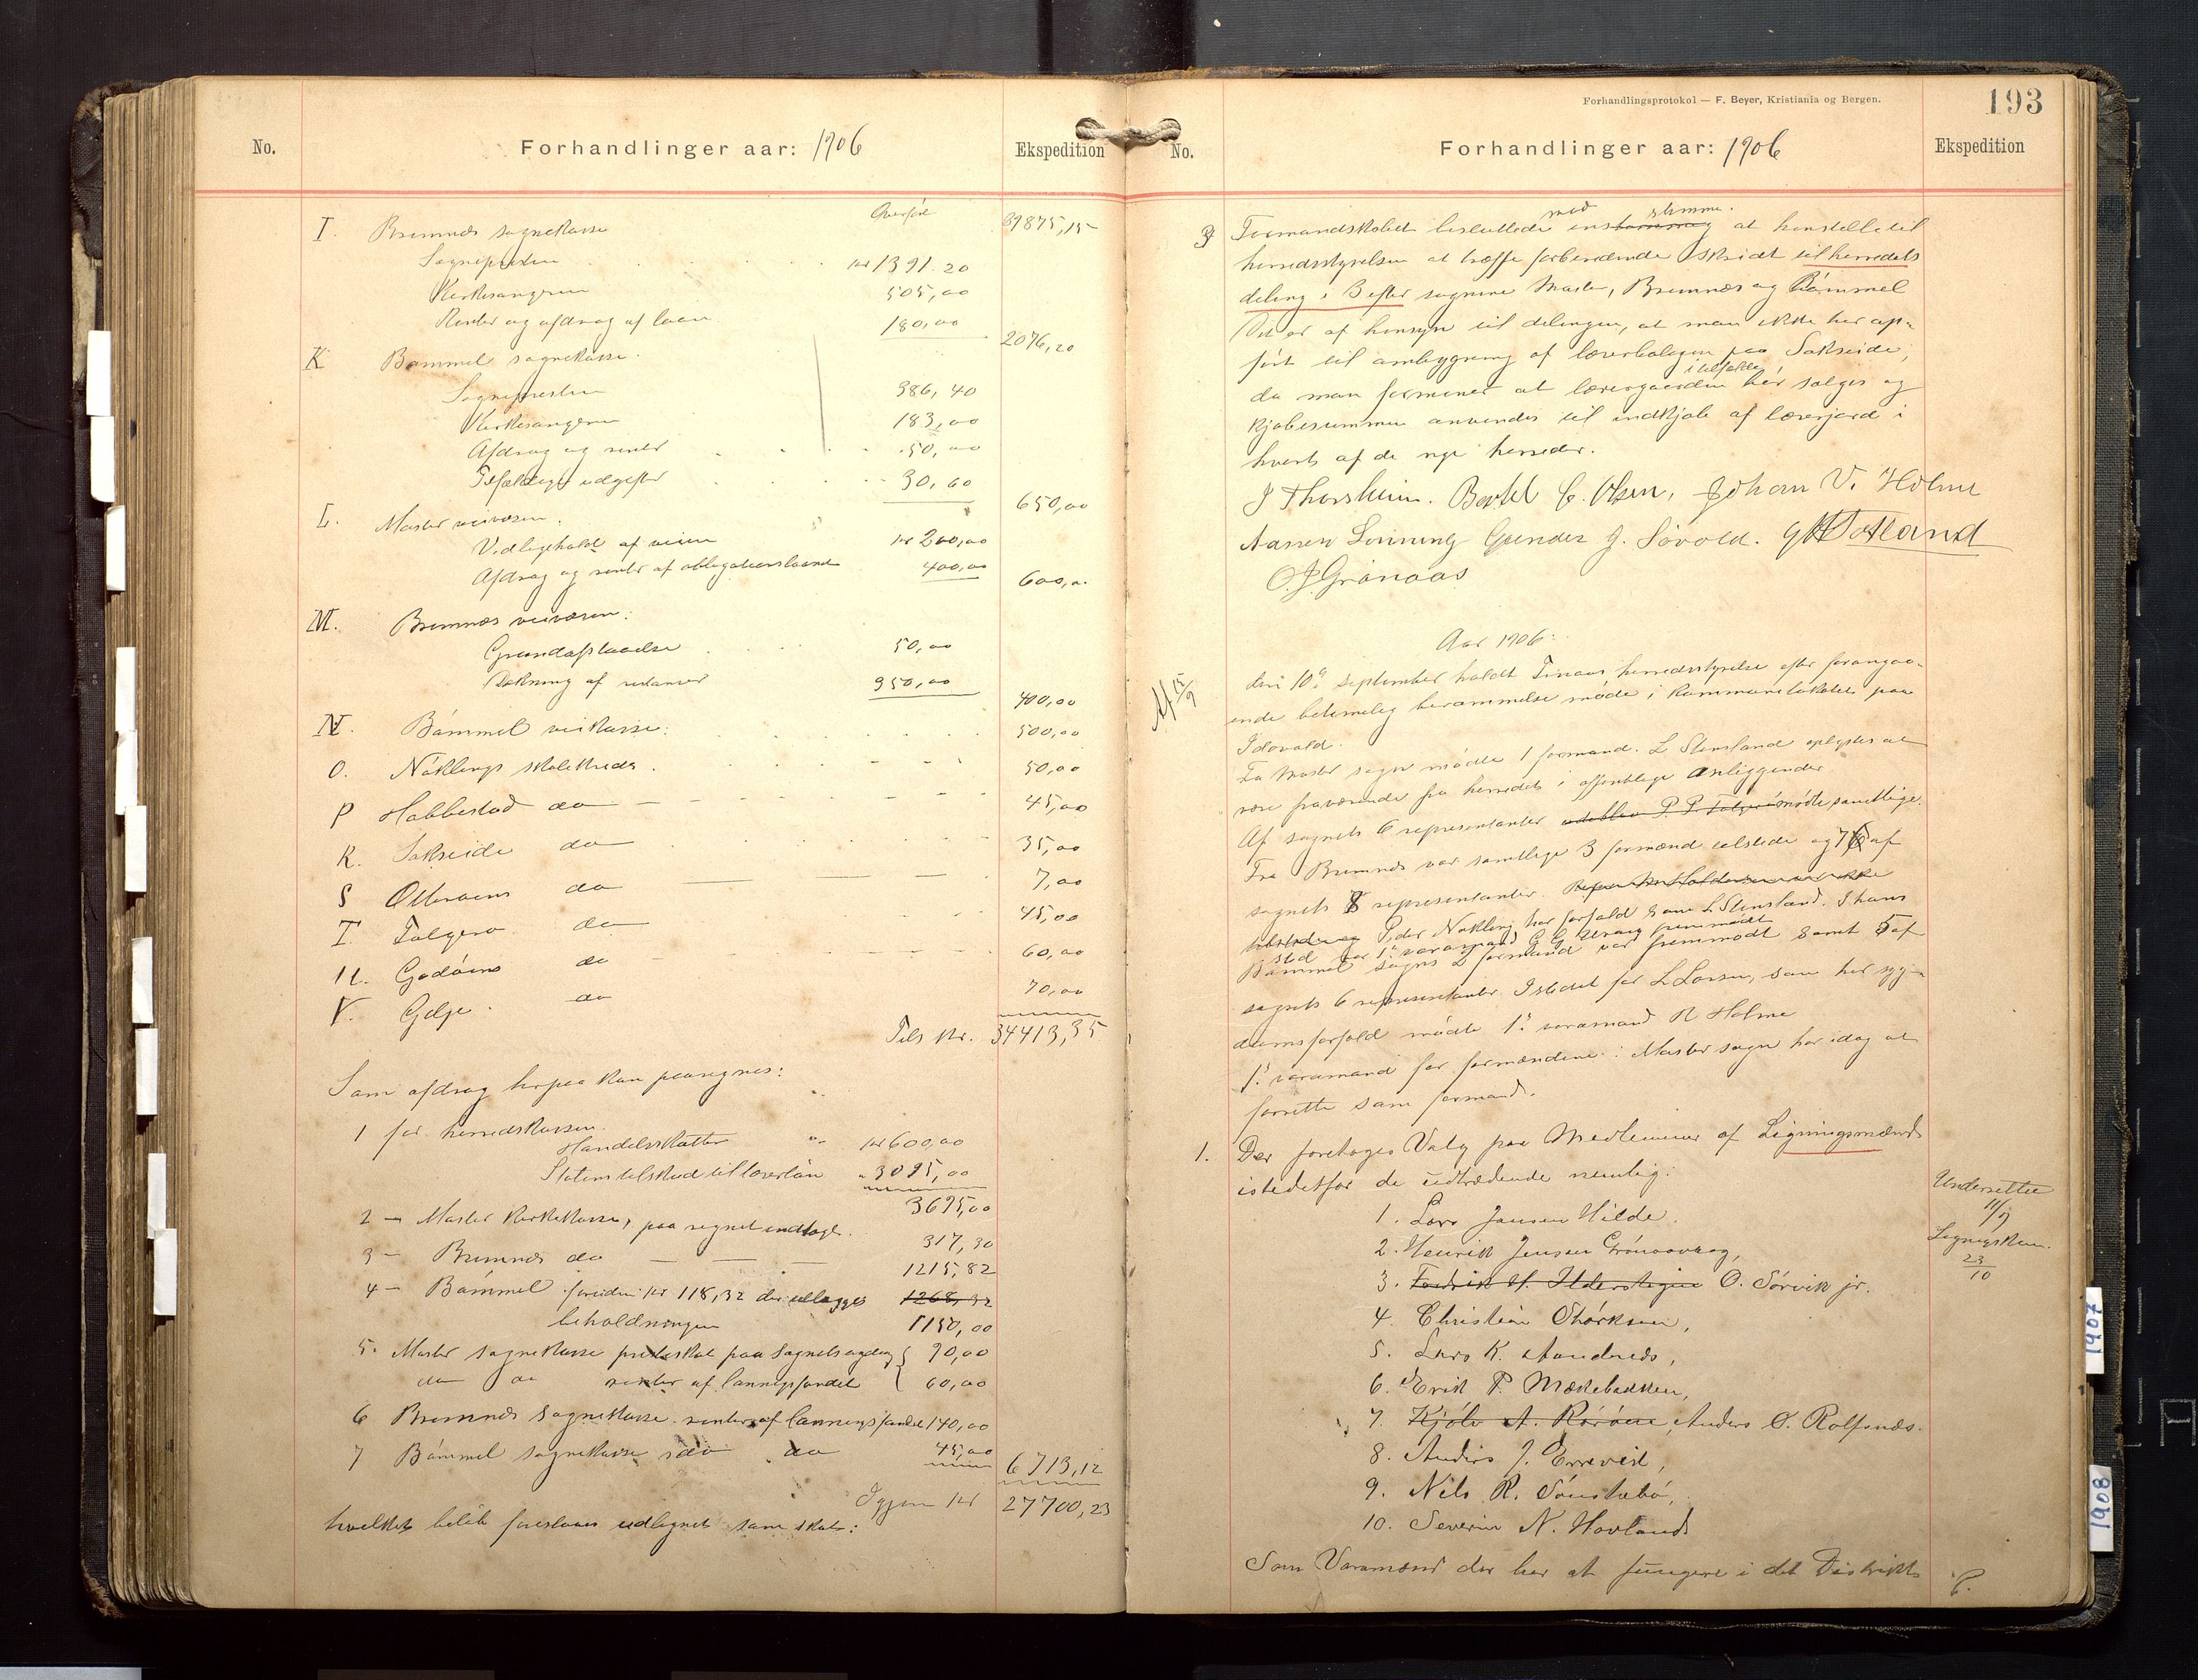 No. Forhandlinger aar: 1906 Ekspedition
Overført 29875,15
I. Bremnes sognekasse
Sognepresten kr 1391.20
Kirkesangeren 505,00
Renter og afdrag af laan 180,00
2076,20
K Bømmel sognekasse.
Sognepresten 386,40
Kirkesangeren 183,00
Afdrag og renter 50,00
Tilfældige udgifter 30,60
650,00
L. Moster veivæsen.
Vedligehold af veien kr 200,00
Afdrag og renter af obligationslaanet 400,00
600,00
M. Bremnes veivæsen:
Grundafstaaelse 50,00
Dækning af restancer 350,00
400,00
N. Bømmel veikasse: 500,00
O. Nøklings skolekreds 50,00
P Habbestad do 45,00
R. Sakseide do 35,00
S Otteraaens do 7,00
T. Folgerø do 45,00
U. Godøens do 60,00
V. Gilje do 70,00
Tils kr. 34413,35
Som afdrag herpaa kan paaregnes:
1 for herredskassen.
Handelsskatter kr 600,00
Statens tilskud til lærerløn " 3095,00
3695,00
2 — Moster kirkekasse, paaregnet indtægt. 317,30
3 — Bremnes do 1215,82
4 — Bømmel foruden kr 118,32 der udlægges 1268,32
beholdningen 1150,00
5. Moster sognekasse presteskat paa sognets 90,00
do do renter af lønningsfondet 60,00
6 Bremnes sognekasse renter af lønningsfondet 140,00
7 Bømmel sognekasse do do 45,00
6713,12
Igjen kr 27700,23
hvilket beløb foreslaaes udlignet som skat:
Forhandlingsprotokol — F. Beyer, Kristiania og Bergen.
193
No. Forhandlinger aar: 1906 Ekspedition
3 Formandskabet besluttede enstemmig med stemme. at henstille til
herredsstyrelsen at træffe forberedende skridt til herredets
deling i 3 efter sognene Moster, Bremnes og Bømmel
Det er af hensyn til delingen, at man ikke har op-
ført til ombygning af lærerboligen paa Sakseide,
da man formener at lærergaarden her i tilfælde sælges og
kjøbesummen anvendes til indkjøb af lærerjord i
hvert af de nye herreder.
J Thorsheim. Bertel C. Olsen, Johan V. Holme
Aamen Lønning Gunder J. Søvold. G H Totland
O. J. Grønaas
Aar 1906:
Af 15/9
den 10de september holdt Finaas herredsstyrelse efter forangaa-
ende betimelig berammelse møde i kommunelokalet paa
Idlovold.
Fra Moster sogn mødte 1 formand. L Stensland oplystes at
være fraværende fra herredet i offentlige anliggender
Af sognets 6 representanter udeblev P. P. Folgerø mødte samtlige.
Fra Bremnes var samtlige 3 formænd tilstede og 7 af
sognets 8 representanter.
Peder Nøkling har forfald som L Stensland. I hans
sted var 1ste varamand fremmødt
Bømmel sogns 2 formænd var fremmødt samt 5 af
sognets 6 representanter. Istedet for L Larsen, som har syg-
domsforfald mødte 1ste varamand R Holme
1ste varamand for formændene i Moster sogn har idag at
forrette som formand.
1. Der foretoges Valg paa Medlemmer af Ligningsmænd
istedetfor de udtrædende nemlig:
1. Lars Jansen Hilde.
2. Henrik Jensen Grønaavaag,
3. Fredrik H. O. Sørvik jr.
4. Christian Størksen,
5. Lars K.
6. Erik P. Mækebakken,
7. Kjølv A. Rørøen, Anders O. Rolfsnes.
8. Anders J. Emeved,
9. Nils R. Sønstabø,
10. Severin N. Hovland
Underrettet 11/9
Ligningskom. 23/10
Som Varamænd der har at fungere i det Distrikt
1907
1908